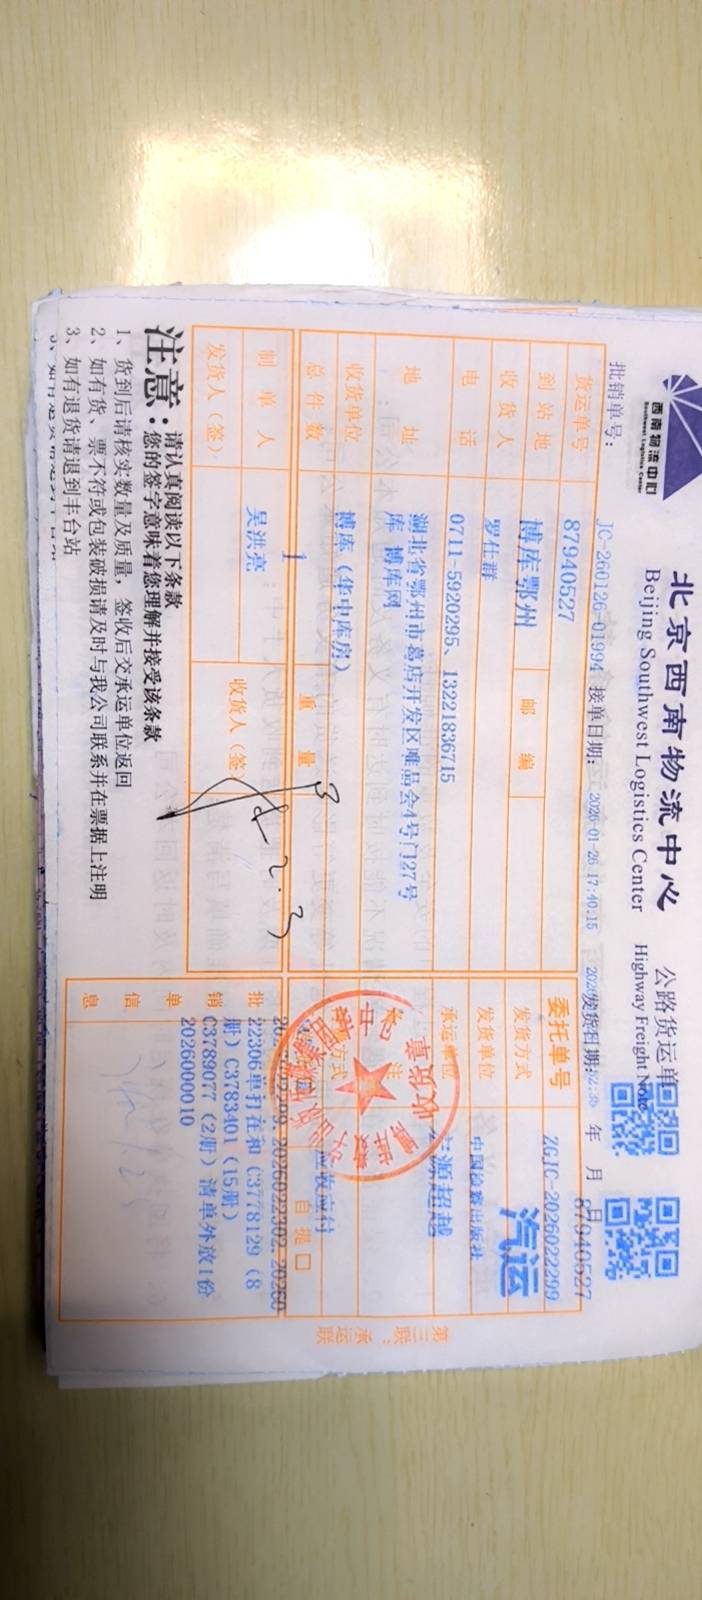 西南物流中心
Southwest Logistics Center
北京西南物流中心
Beijing Southwest Logistics Center
公路货运单
Highway Freight Note
批销单号：
JC-260126-01994
接单日期：
2026-01-26 17:40:15
发货日期：
年 月 日
87940527
货运单号
87940527
委托单号
ZGJC-2026022299
到站地
博库鄂州
邮编
发货方式
汽运
收货人
罗仕群
发货单位
中国检察出版社
电话
0711-5920295、13221836715
承运单位
源超越
地址
湖北省鄂州市葛店开发区唯品会4号门27号
库 博库网
收货单位
博库（华中库房）
方式
应收应付
总件数
1
重量
自提口
制单人
吴洪亮
收货人（签）
2.3
发货人（签）
批销单信息
2026022299, 2026022302, 20260
22306单打在和 C3778129（8
册）C3783401（15册）
C3789077（2册）清单外放1份
2026000010
第三联：承运联
注意：
请认真阅读以下条款
您的签字意味着您理解并接受该条款
1、货到后请核实数量及质量，签收后交承运单位返回
2、如有货、票不符或包装破损请及时与我公司联系并在票据上注明
3、如有退货请退到丰台站